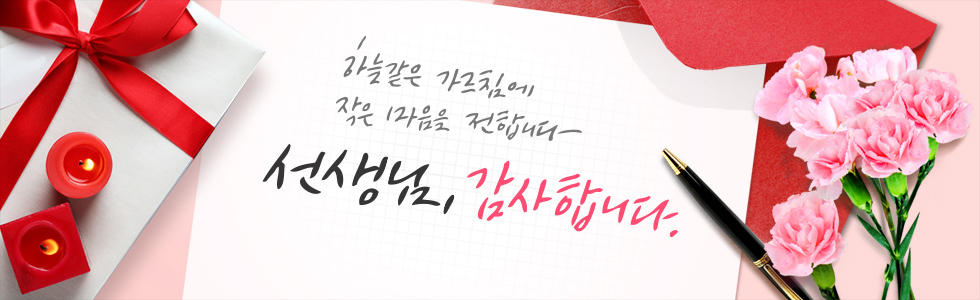 하늘같은 가르침에
작은 마음을 전합니다
선생님, 감사합니다.